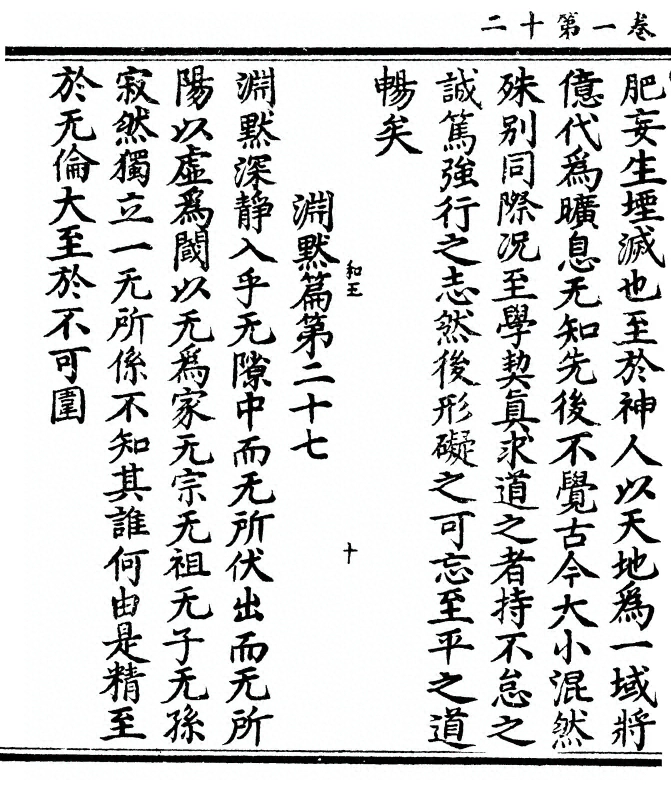 卷一第十二
肥妄生堙滅也至於神人以天地爲一域將
億代爲曠息无知先後不覺古今大小混然
殊别同際况至學契眞求道之者持不怠之
誠篤強行之志然後形礙之可忘至平之道
暢矣
和王
十
淵默篇第二十七
淵默深靜入乎无隙中而无所伏出而无所
陽以虛爲閾以无爲家无宗无祖无子无孫
寂然獨立一无所係不知其誰何由是精至
於无倫大至於不可圍